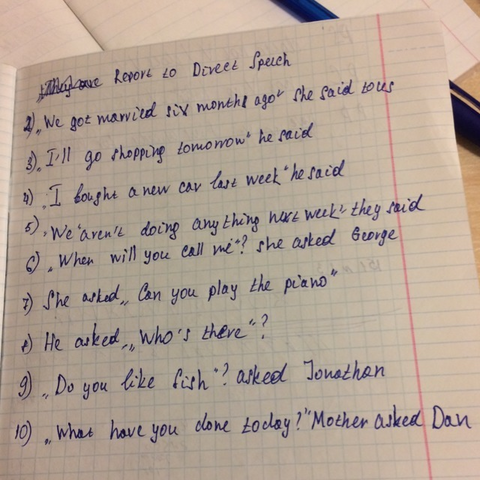 Report to Direct Speech
2) „We got married six months ago" she said to us
3) „I'll go shopping tomorrow" he said
4) „I bought a new car last week" he said
5) „We aren't doing anything next week" they said
6) „When will you call me"? she asked George
7) She asked „Can you play the piano"
8) He asked „Who's there"?
9) „Do you like fish"? asked Jonathan
10) „What have you done today?" Mother asked Dan